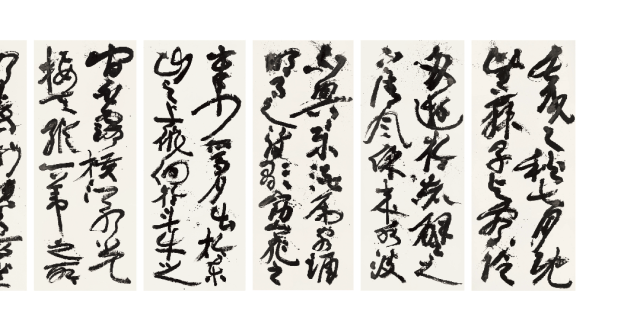 壬戌之秋七月既
望蘇子与客泛
舟遊於赤壁之
下清風徐來水波
不興舉酒屬客誦
明月之詩歌窈窕之
章少焉月出於東
山之上徘徊於斗牛之
間白露橫江水光
接天縱一葦之所